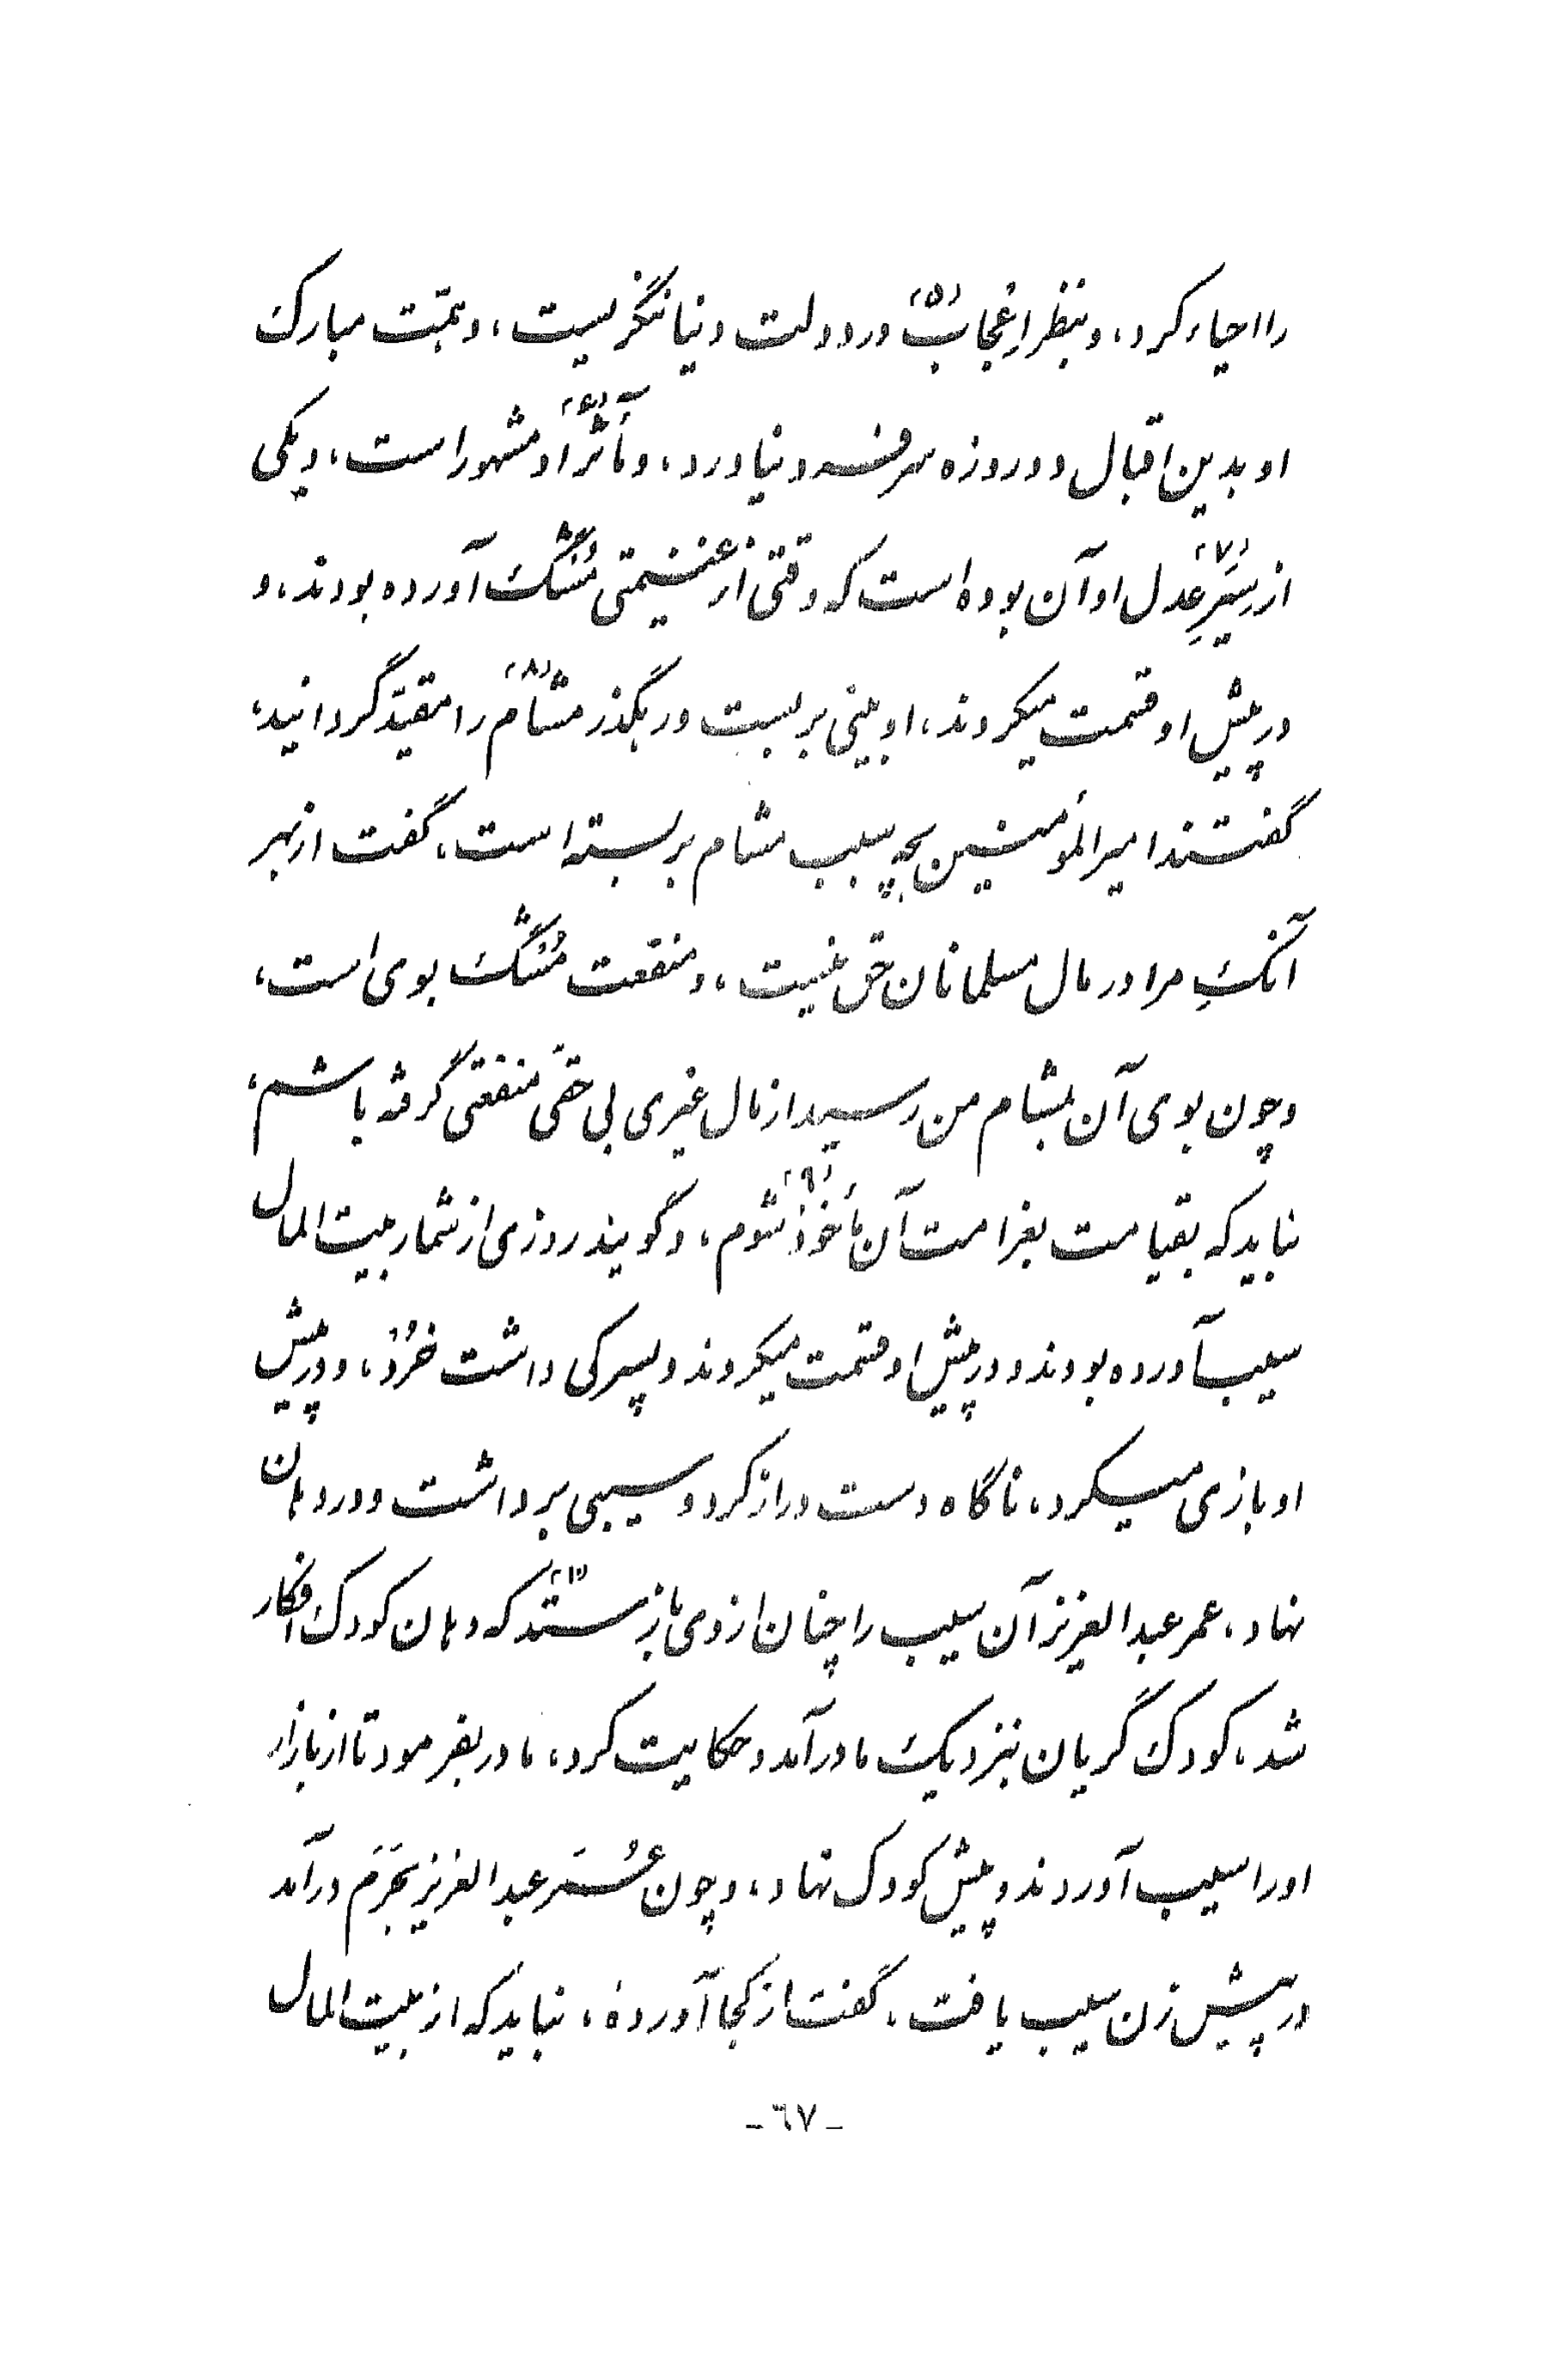 را احیاء کرد، و بنظر اِعْجاب(۵) در دولت دنیا ننگریست، و همّت مبارک
او بدین اقبال دو روزه سر فرو نیاورد، و مآثر(۶) او مشهور است، و یکی
از سِیَرِ(۷) عدل او آن بوده است که وقتی از غنیمتی مُشْک آورده بودند، و
در پیش او قسمت میکردند، او بینی بر بست و رهگذر مشامّ(۸) را مقیّد گردانید،
گفتند امیرالمؤمنین بچه سبب مشام بر بسته است، گفت از بهر
آنکِ مرا در مال مسلمانان حق نیست، و منفعت مُشْک بوی است،
و چون بوی آن بمشام من رسید از مال غیری بی حقّی منفعتی گرفته باشم،
نباید که بقیامت بغرامت آن مأخوذ(۹) شوم، و گویند روزی از شمار بیت المال
سیب آورده بودند و در پیش او قسمت میکردند و پسرکی داشت خُرْد، و در پیش
او بازی میکرد، ناگاه دست دراز کرد و سیبی برداشت و در دهان
نهاد، عمر عبدالعزیز آن سیب را چنان از وی باز ستد(۱۰) که دهان کودک افگار
شد، کودک گریان بنزدیک مادر آمد و حکایت کرد، مادر بفرمود تا از بازار
او را سیب آوردند و پیش کودک نهاد، و چون عُمَر عبدالعزیز بحَرَم درآمد
در پیش زن سیب یافت، گفت از کجا آوردهٔ، نباید که از بیت المال
-٦٧-